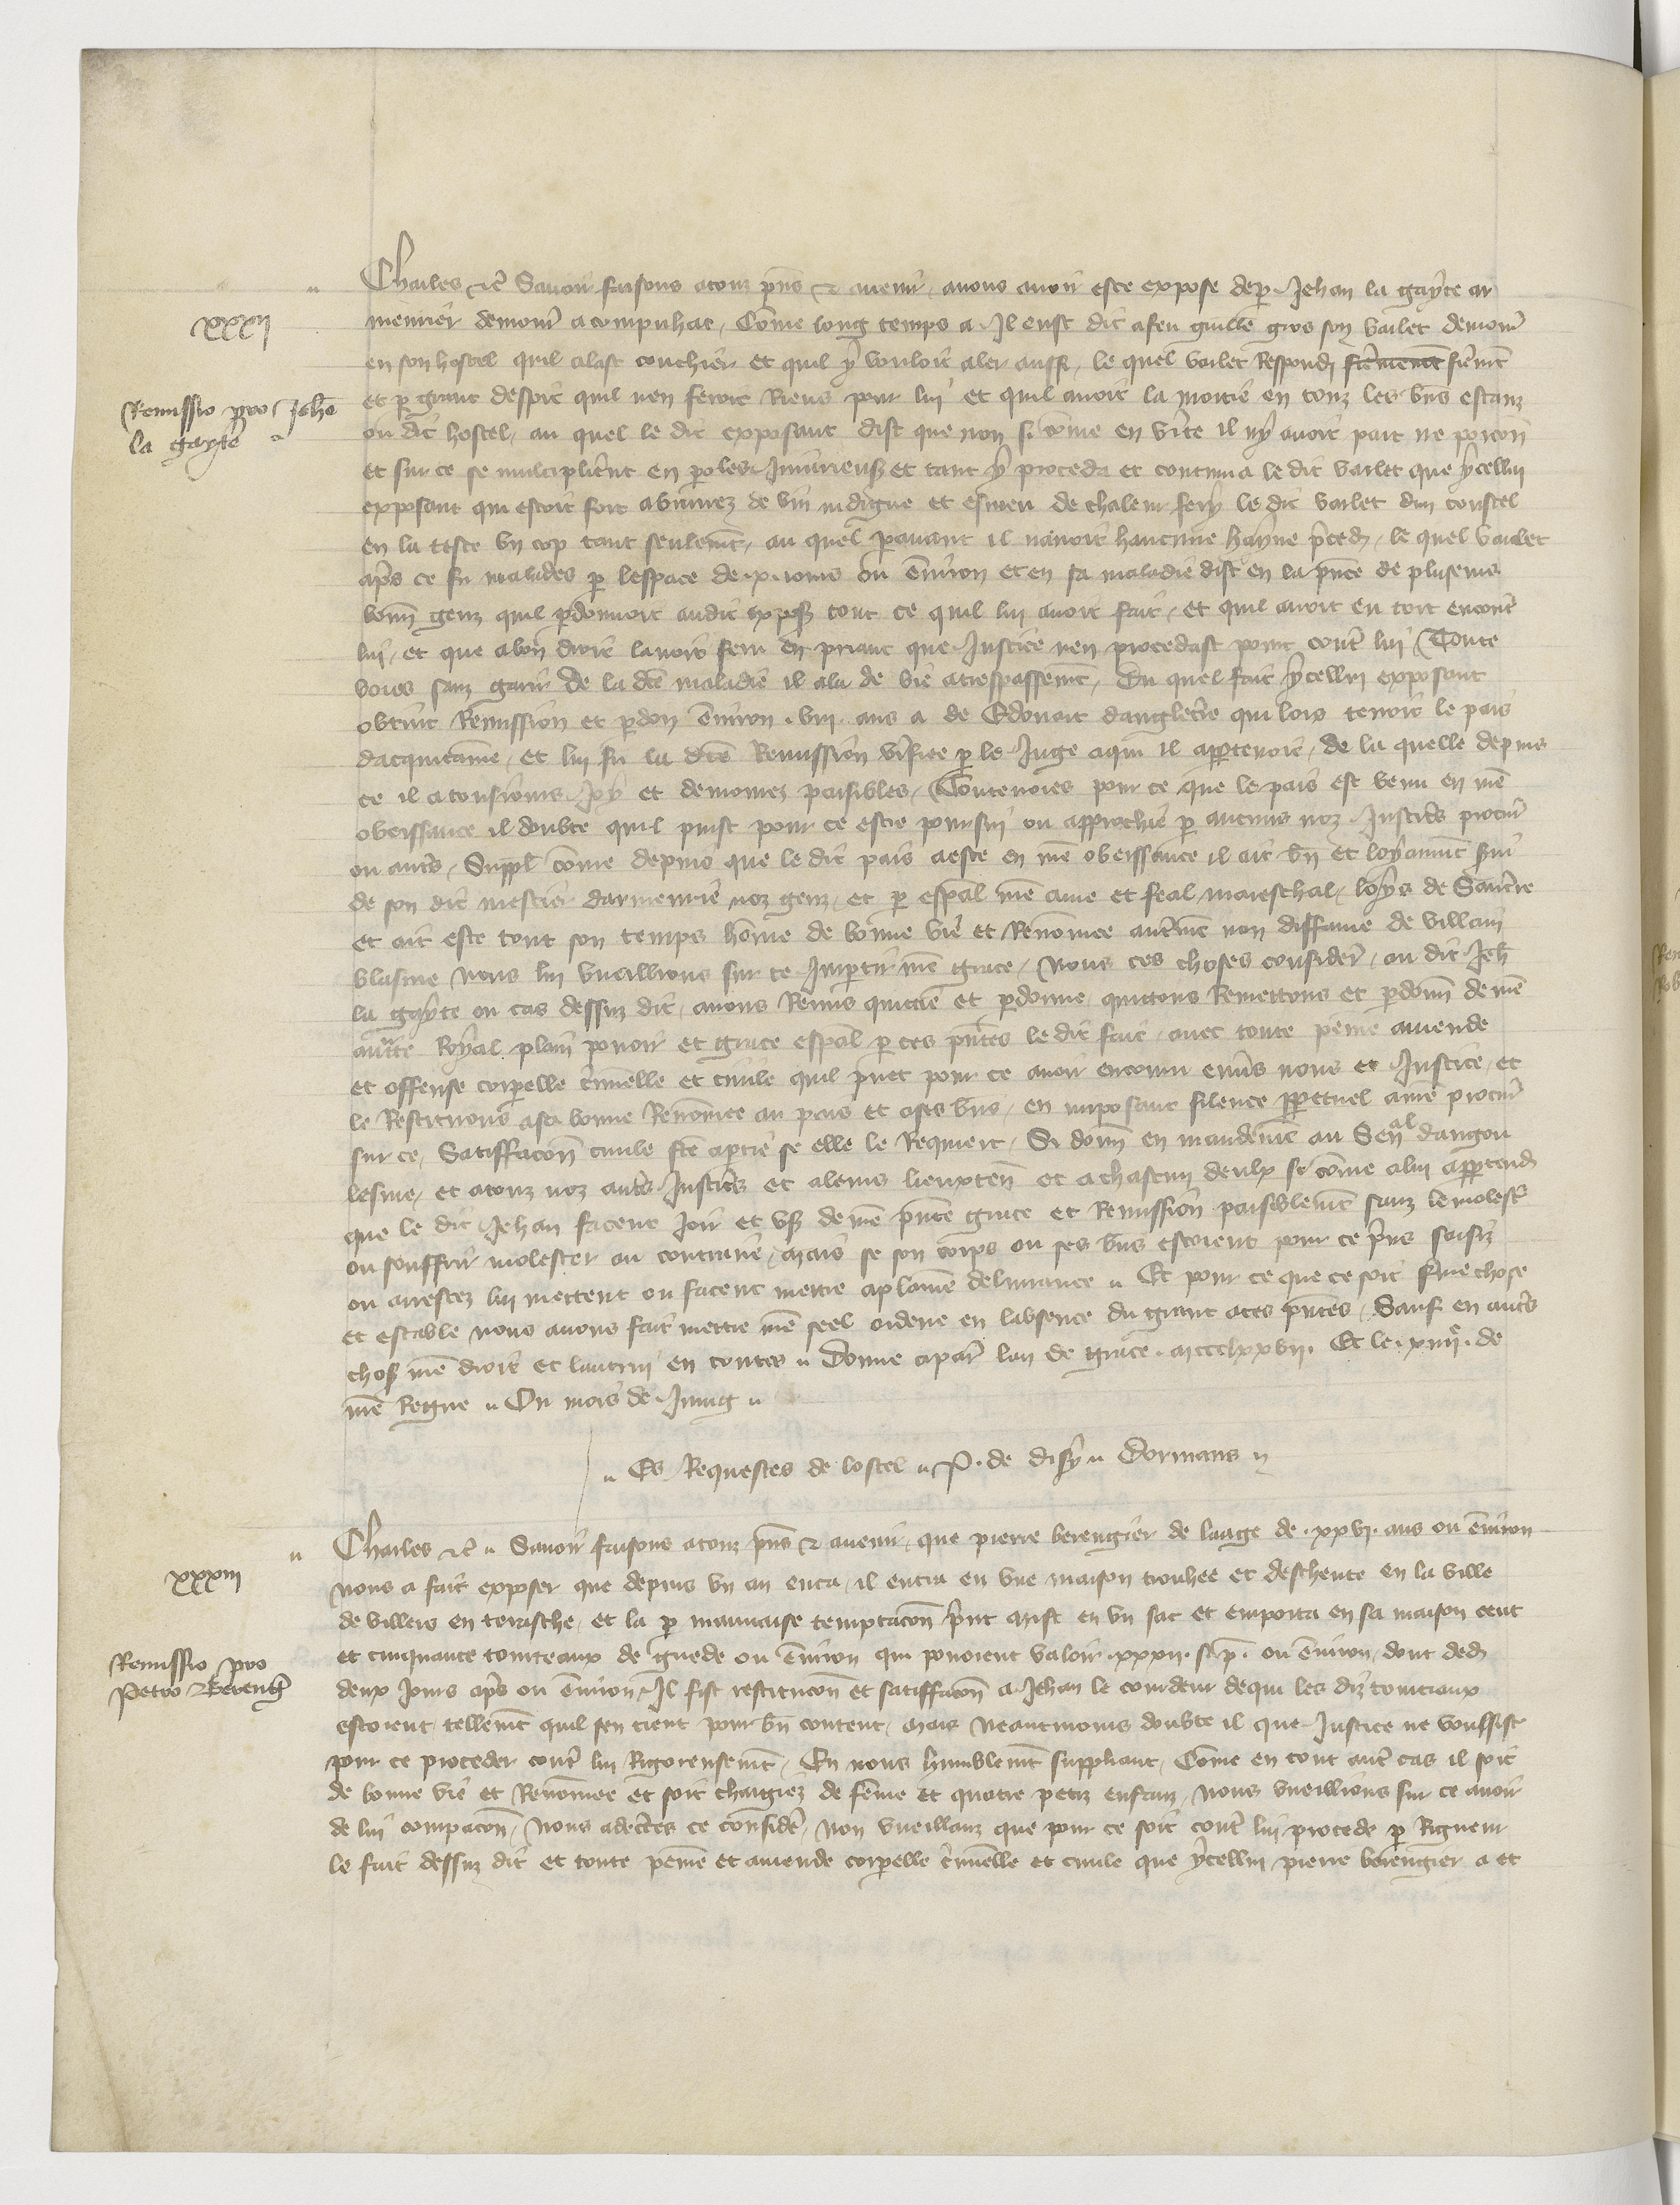 xxxii
Remissio pro Jehe
la gayte
Charles etc Savoir faisons a touz pns et avenir, avons avoir este expose de p Jehan la gayte ar
meurier demour a compuhac, Come long temps a, Il eust dit a feu guille gros son varlet demour
en son hostel quil alast couchier et quil y vouloit aler aussi, le quel varlet Respondi fierement fieremt
et p grant despit quil nen feroit Riens pour lui et quil avoit la moitie en touz les bns estanz
ou dit hostel, au quel le dit exposant dist que non si come en vite il ny avoit part ne porcon
et sur ce se multiplierent en poles Injurieuses et tant y proceda et continua le dit varlet que ycellui
exposant qui estoit fort abuvrez de vin indigne et esmeu de chaleur fery le dit varlet dun coustel
en la teste un cop tant seulemt, au quel pavant il navoit haucune hayne preced, le quel varlet
aps ce fu malades p lespace de .x. jours ou environ et en sa maladie dist en la pnce de plusieurs
bonn genz quil pdonnoit audit exposant tout ce quil lui avoit fait, et quil avoit eu tort encontre
lui, et que a bon droit lavoit feru en priant que Justice nen procedast point contre lui, Toute
voies sanz garir de la dce maladie il ala de vie a trespassemt, Du quel fait ycellui exposant
obtint Remission et pdon environ .viii. ans a de Edouart dangleterre qui lors tenoit le pais
dacquitaine, et lui fu la dce Remission verifiee p le Juge a qui il appartenoit, de la quelle depuis
ce il a tousjours joy et demourez paisibles, Toutevoies pour ce que le pais est venu en nre
obeissance il doubte quil puist pour ce estre poursui ou approchie p aucuns noz Justiciers procur
ou autres, Suppl come depuis que le dit pais a este en nre obeissance il ait bn et loyaumt servi
de son dit mestier darmeurie noz genz, et p espal nre ame et feal mareschal, loys de Sancerre
et ait este tout son temps home de bonne vie et Renomee autremt non diffame de villain
blasme nous lui vueillions sur ce Impartir nre grace, Nous ces choses consider, ou dit Jeh
la gayte ou cas dessuz dit, avons Remis quictie et pdonne, quittons Remettons et pdonn de nre
aucte Royal plain povoir et grace espal p ces pntes le dit fait, avec toute peine amende
et offense corpelle criminelle et civile quil puet pour ce avoir encouru envers nous et Justice, et
le Restituons a sa bonne Renomee au pais et a ses bns, en imposant silence ppetuel a nre procur
sur ce, Satiffacon civile fte a ptie se elle le Requiert, Si donn en mandemt au Senal dangou
lesme, et a touz noz autres Justiciers et a leurs lieuxten et a chascun deulx si come a lui appartend
que le dit Jehan facent joir et user de nre pnte grace et Remission paisiblemt sanz le molester
ou souffrir molester au contraire, Mais se son corps ou ses bns estoient pour ce prins saisiz
ou arrestez lui mettent ou facent mettre a plaine delivrance Et pour ce que ce soit ferme chose
et estable nous avons fait mettre nre seel ordene en labsence du grant a ces pntes, Sauf en autres
choses nre droit et lautrui en toutes Donne a par lan de grace .mccclxxvii. Et le .xiiiie. de
nre Regne Ou mois de Juing
Es Requestes de lostel P. de disy Dormans
xxxiii
Remissio pro
Petro Berengr
Charles etc Savoir faisons a touz pns et avenir, que pierre berengier de laage de .xxvi. ans ou environ
nous a fait exposer que depuis un an enca, il entra en une maison trouhee et descheute en la ville
de villers en terasche, et la p mauvaise temptacon print mist en un sac et emporta en sa maison cent
et cinquante tourteaux de guede ou environ qui povoient valoir .xxxii. s. p. ou environ, dont dedens
deux jours aps ou environ, Il fist restitucon et satiffacon a Jehan le courdeur de qui les diz tourteaux
estoient, tellemt quil sen tient pour bn content, Mais neantmoins doubte il que Justice ne voulsist
pour ce proceder contre lui Rigoreusemt, En nous humblemt suppliant, Come en tout autre cas il soit
de bonne vie et Renomee et soit chargiez de feme et quatre petiz enfanz, nous vueillions sur ce avoir
de lui compacon, Nous adectes ce consider, non vueillanz que pour ce soit contre lui procede p Rigueur
le fait dessuz dit et toute peine et amende corpelle criminelle et civile que ycellui pierre berengier a et